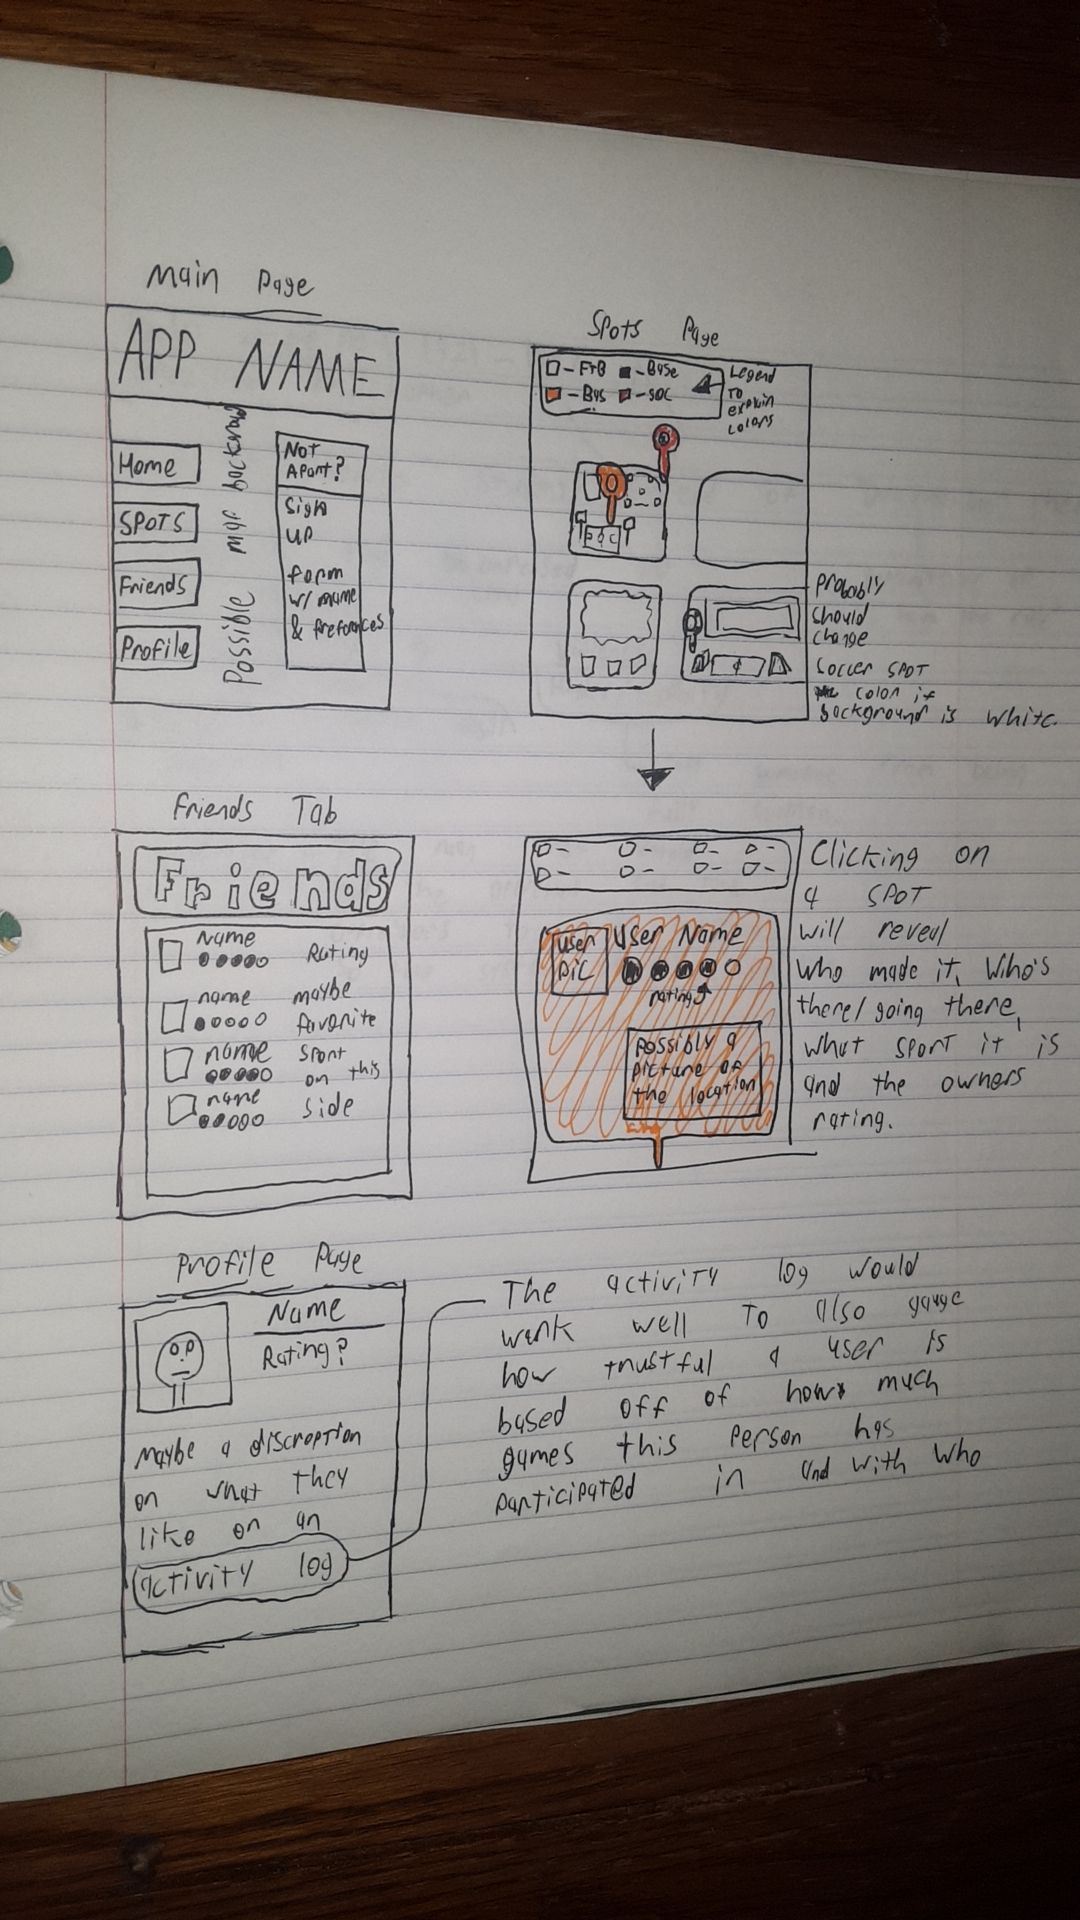 Main Page
APP NAME
Home
SPOTS
Friends
Profile
Possible map backround
Not
Apart?
Sign
up
form
w/ name
& preferences
Spots Page
- FTB
- Base
- Bas
- SOC
Legend
To
explain
colors
Probably
should
change
Soccer SPOT
color if
background is white.
Friends Tab
Friends
Name
Rating
name
maybe
favorite
name
sport
on this
name
side
User
Pic
User Name
rating
Possibly a
picture of
the location
Clicking on
a SPOT
will reveal
who made it, Who's
there/going there,
what sport it is
and the owners
rating.
Profile Page
Name
Rating?
Maybe a discroption
on what they
like on an
activity log
The activity log would
work well To also gauge
how trustful a user is
based off of how much
games this person has
participated in and with who